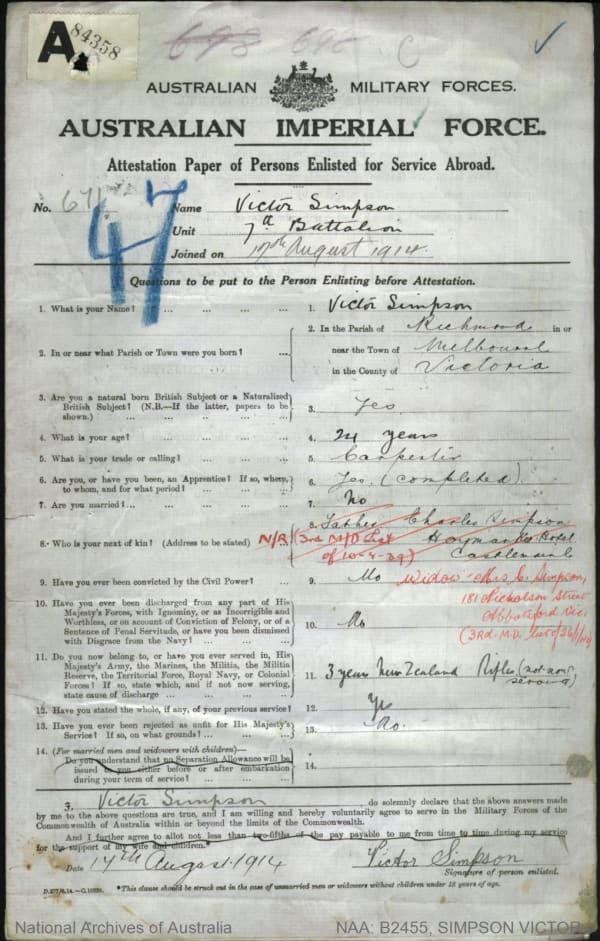 A 84358
698 698 C
AUSTRALIAN MILITARY FORCES.
AUSTRALIAN IMPERIAL FORCE.
Attestation Paper of Persons Enlisted for Service Abroad.
No. 671 Name Victor Simpson
47
Unit 7th Battalion
Joined on 17th August 1914.
Questions to be put to the Person Enlisting before Attestation.
1. What is your Name? ... ... ... 1. Victor Simpson
2. In or near what Parish or Town were you born? ... 2. In the Parish of Richmond in or
near the Town of Melbourne
in the County of Victoria
3. Are you a natural born British Subject or a Naturalized
British Subject? (N.B.—If the latter, papers to be
shown.) ... ... ... ... 3. Yes.
4. What is your age? ... ... ... 4. 24 years
5. What is your trade or calling? ... ... 5. Carpenter
6. Are you, or have you been, an Apprentice? If so, where,
to whom, and for what period? ... ... ... 6. Yes. (completed).
7. Are you married? ... ... ... ... 7. No
8. Who is your next of kin? (Address to be stated) ... 8. Father Charles Simpson
N/R (3rd M/D List Haymarket Hotel
of 10-8-39) Castlemaine
9. Have you ever been convicted by the Civil Power? ... 9. No
Widow—Mrs. E. Simpson,
181 Nicholson Street
Abbotsford Vic.
(3RD. M.D. List of
10. Have you ever been discharged from any part of His
Majesty's Forces, with Ignominy, or as Incorrigible and
Worthless, or on account of Conviction of Felony, or of a
Sentence of Penal Servitude, or have you been dismissed
with Disgrace from the Navy? ... ... ... 10. No
11. Do you now belong to, or have you ever served in, His
Majesty's Army, the Marines, the Militia, the Militia
Reserve, the Territorial Force, Royal Navy, or Colonial
Forces? If so, state which, and if not now serving,
state cause of discharge ... ... ... 11. 3 years New Zealand Rifles (not now
serving)
12. Have you stated the whole, if any, of your previous service? 12. Yes
13. Have you ever been rejected as unfit for His Majesty's
Service? If so, on what grounds? ... ... 13. No.
14. (For married men and widowers with children)—
Do you understand that no Separation Allowance will be
issued to you either before or after embarkation
during your term of service? ... ... 14.
I, Victor Simpson do solemnly declare that the above answers made
by me to the above questions are true, and I am willing and hereby voluntarily agree to serve in the Military Forces of the
Commonwealth of Australia within or beyond the limits of the Commonwealth.
And I further agree to allot not less than two-fifths of the pay payable to me from time to time during my service
for the support of my wife and children.*
Date 17th August 1914 Victor Simpson
Signature of person enlisted.
*This clause should be struck out in the case of unmarried men or widowers without children under 18 years of age.
National Archives of Australia NAA: B2455, SIMPSON VICTOR